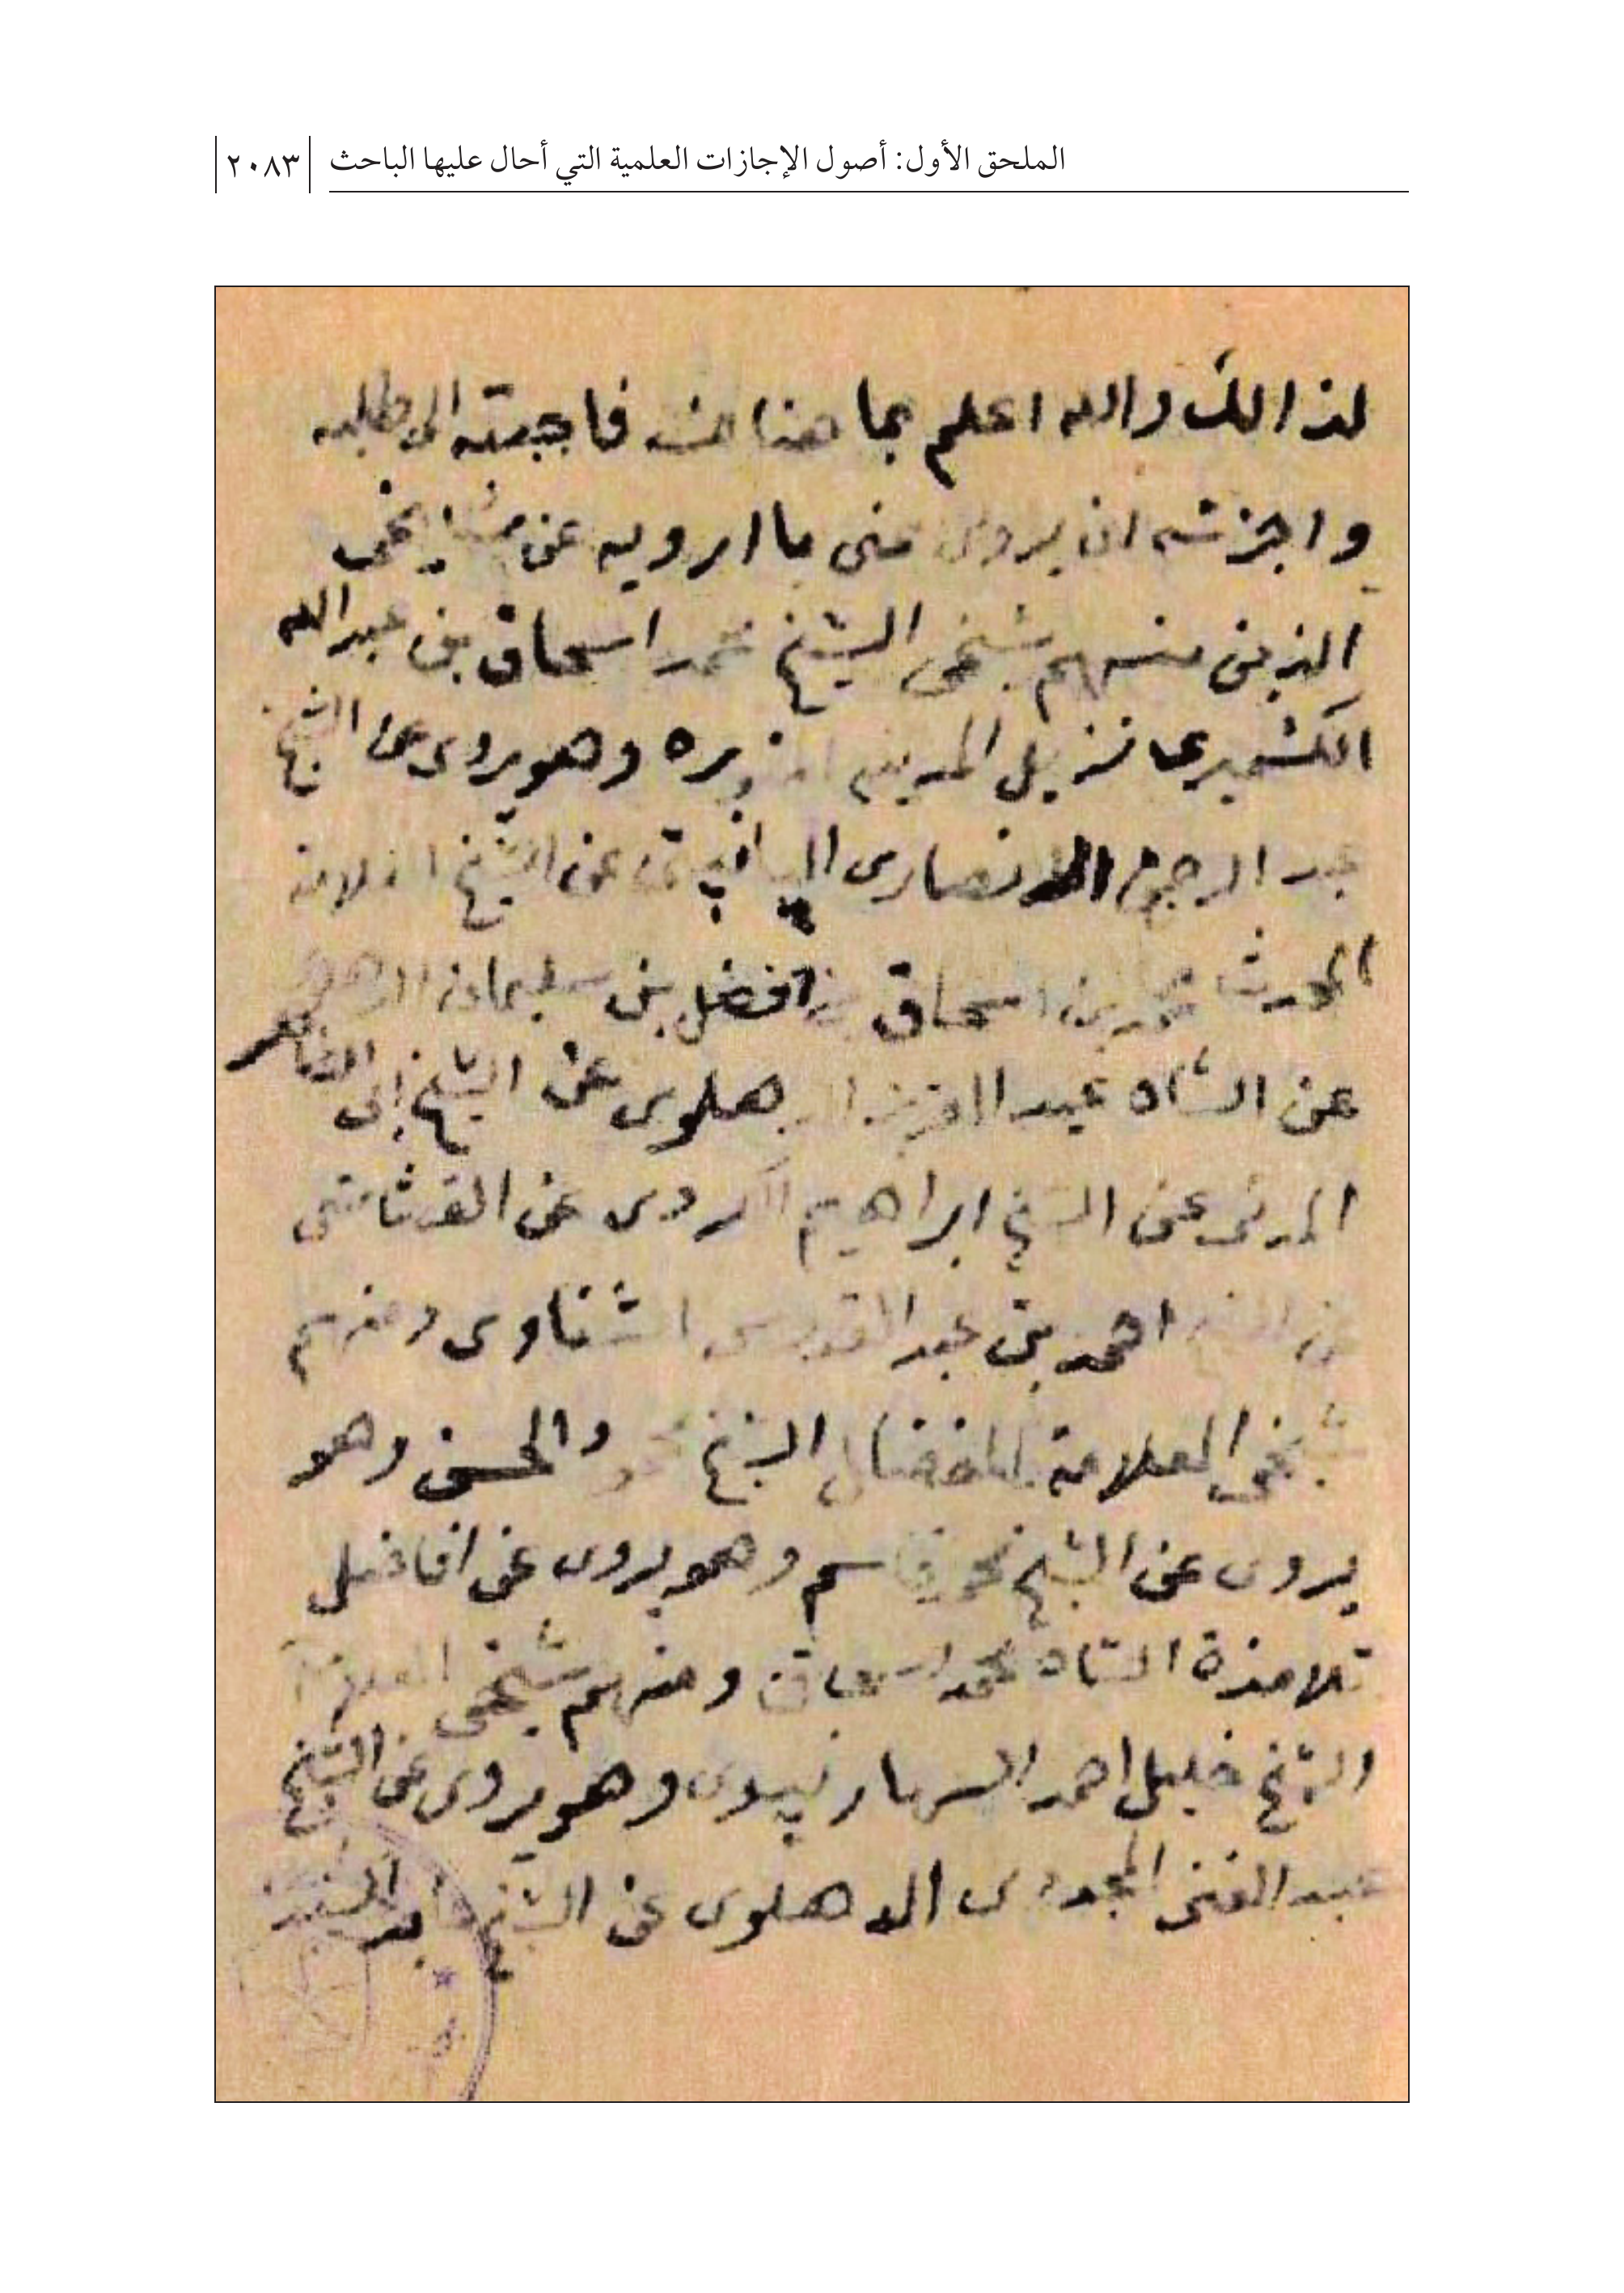 الملحق الأول: أصول الإجازات العلمية التي أحال عليها الباحث ٢٠٨٣
لذالك والله اعلم بما هنالك فاجبته الى طلبه
واجزته ان يروى عنى ما ارويه عن مشايخى
الذين منهم شيخى الشيخ محمد اسحاق بن عبدالله
الكشميرى نزيل المدينه المنوره وهو يروى عن الشيخ
عبد الرحمن الانصارى عن الشيخ العلامة
المحدث محمد بن اسحاق بن افضل بن سليمان
عن الشاه عبد العزيز الدهلوى عن الشيخ ابى الطاهر
المدنى عن الشيخ ابراهيم الكردى عن القشاشى
عن الشيخ احمد بن عبد القدوس الشناوى ومنهم
شيخى العلامة المفضال الشيخ محمود الحسن وهو
يروى عن الشيخ محمد قاسم وهو يروى عن افاضل
تلامذة الشاه محمد اسحاق ومنهم شيخى العلامة
الشيخ خليل احمد السهارنپورى وهو يروى عن الشيخ
عبد الغنى المجددى الدهلوى عن الشيخ عابد السندى